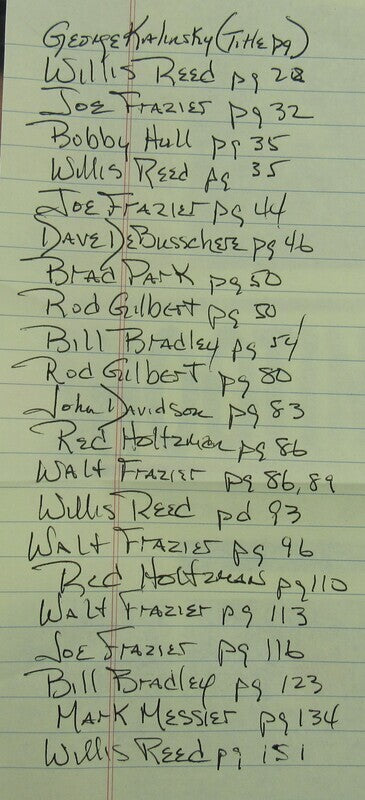 George Kalinsky (Title pg)
Willis Reed pg 28
Joe Frazier pg 32
Bobby Hull pg 35
Willis Reed pg 35
Joe Frazier pg 44
Dave DeBusschere pg 46
Brad Park pg 50
Rod Gilbert pg 50
Bill Bradley pg 54
Rod Gilbert pg 80
John Davidson pg 83
Red Holtzman pg 86
Walt Frazier pg 86, 89
Willis Reed pd 93
Walt Frazier pg 96
Red Holtzman pg 110
Walt Frazier pg 113
Joe Frazier pg 116
Bill Bradley pg 123
Mark Messier pg 134
Willis Reed pg 151